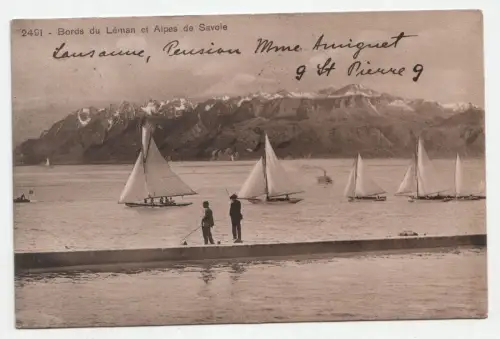 2491 - Bords du Léman et Alpes de Savoie
Lausanne, Pension Mme Amiguet
9 St Pierre 9